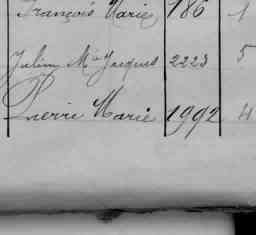 François Marie 186 1
Julien Mie Jacques 2223 5
Pierre Marie 1992 4